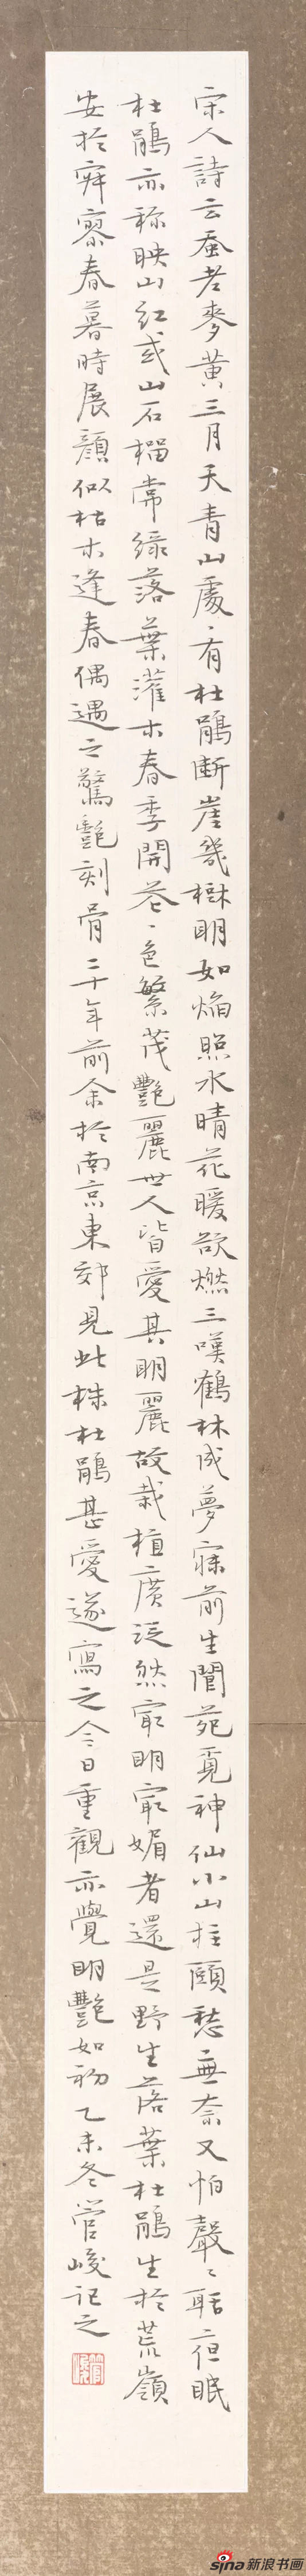 宋人詩云蚕老麥黄三月天青山處〻有杜鵑断崖幾樹明如焰照水晴花暖欲燃三嘆鶴林成夢寐前生閬苑覓神仙小山拄頤愁無奈又怕聲〻聒〻但眠
杜鵑亦称映山红或山石榴常绿落葉灌木春季開花〻色繁茂艷麗世人皆愛其明麗故栽植廣泛然最明最媚者還是野生落葉杜鵑生於荒嶺
安於寂寥春暮時展顏似枯木逢春偶遇之驚艷刻骨二十年前余於南京東郊見此株杜鵑甚愛遂寫之今日重觀亦覺明艷如初乙未冬管峻記之
sina 新浪书画